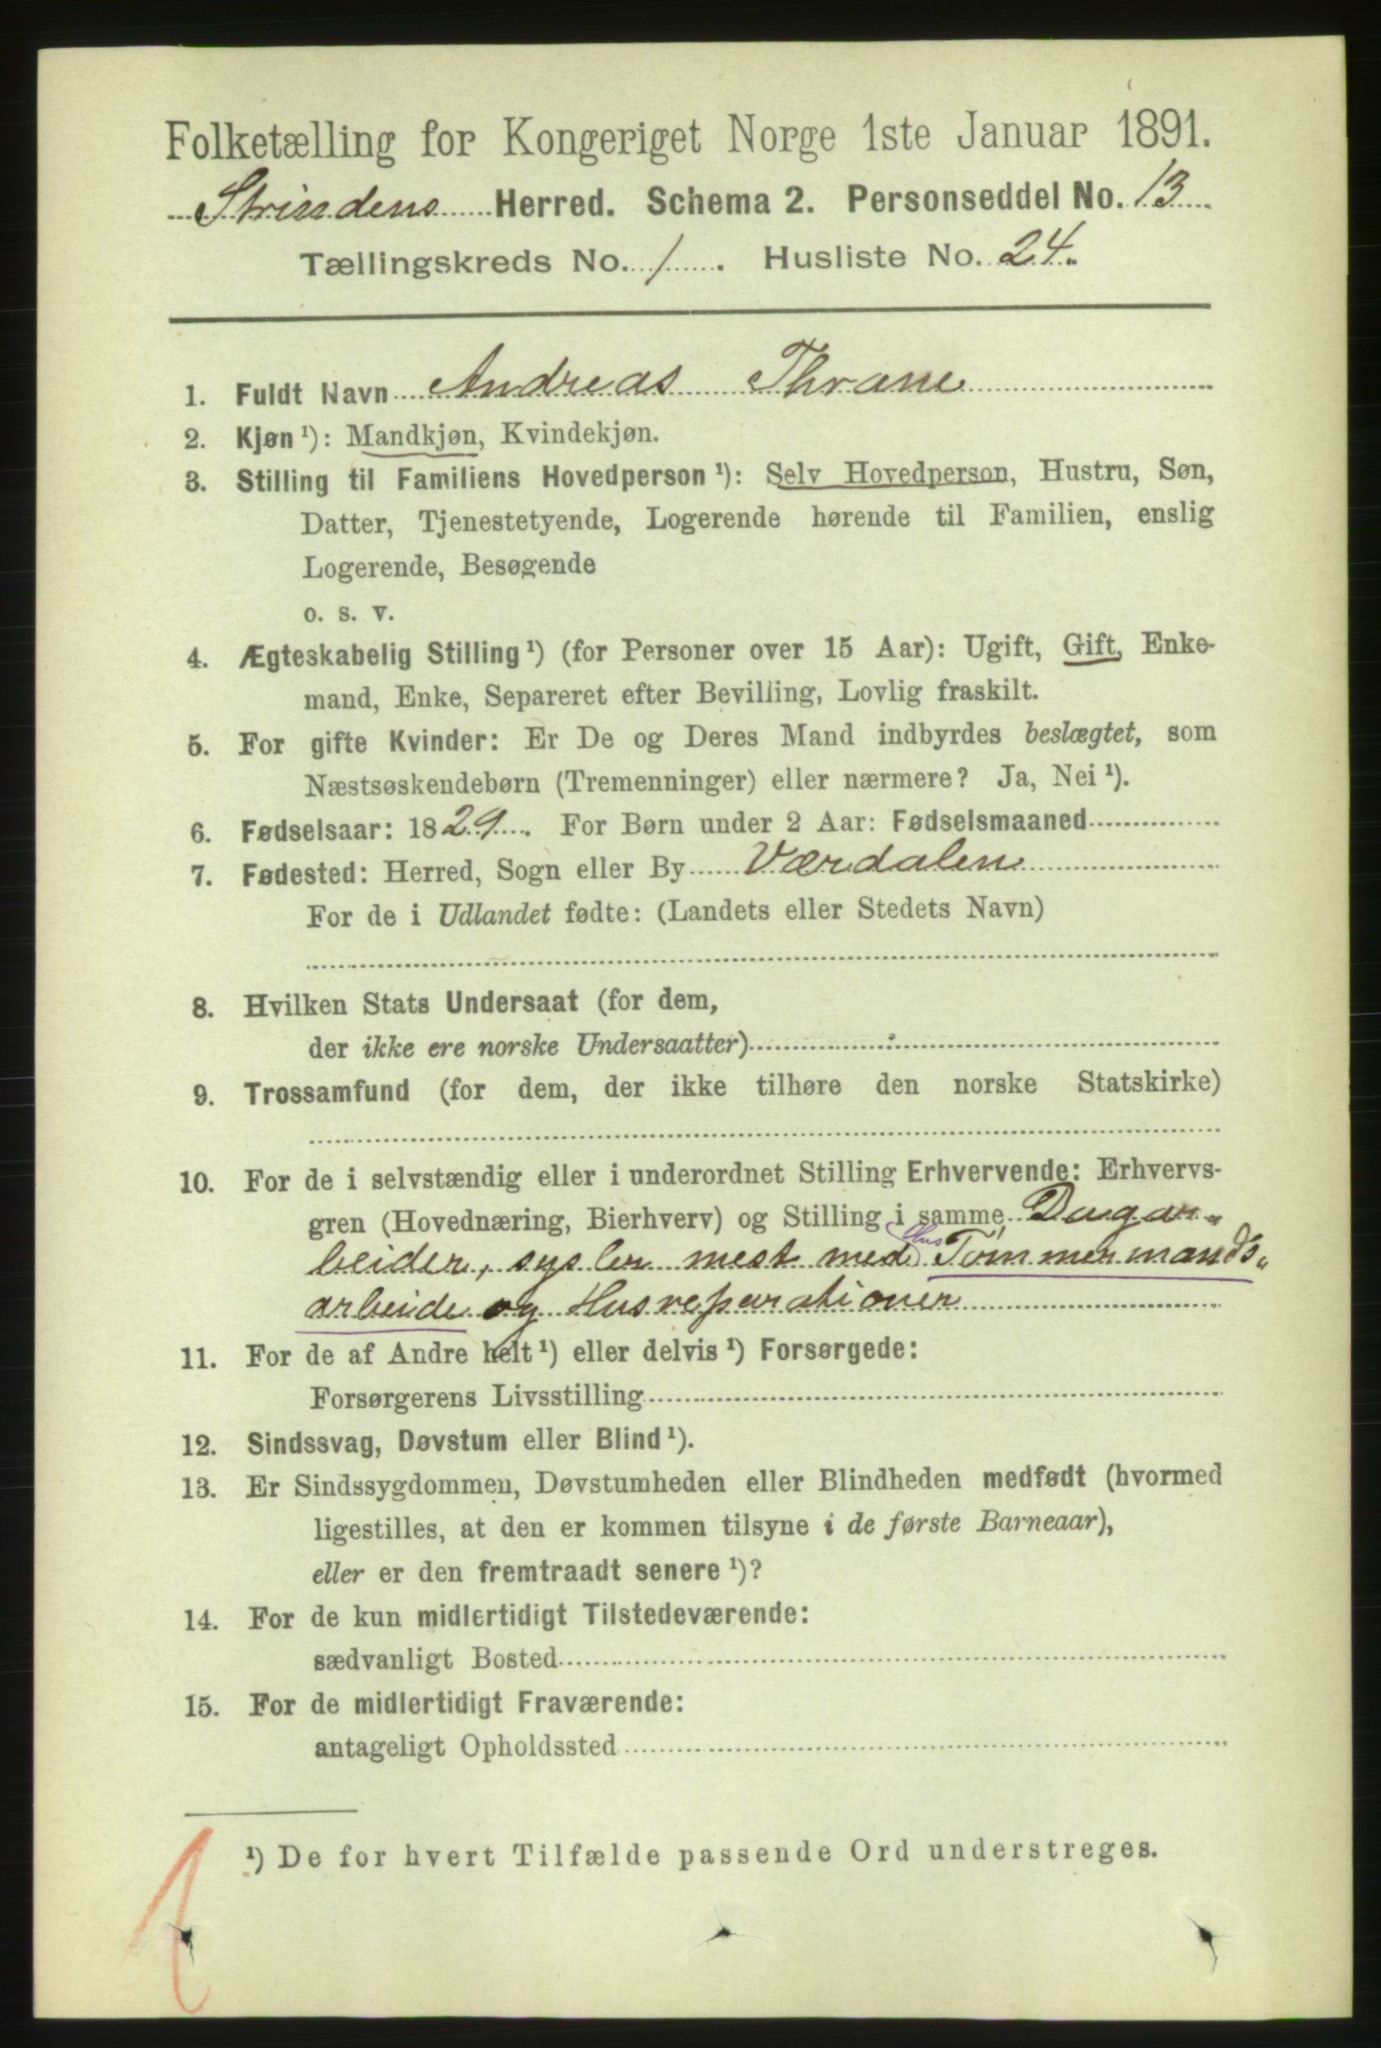 Folketælling for Kongeriget Norge 1ste Januar 1891.
Strindens Herred. Schema 2. Personseddel No. 13
Tællingskreds No. 1. Husliste No. 24.
1. Fuldt Navn Andreas Thrane
2. Kjøn ¹): Mandkjøn, Kvindekjøn.
3. Stilling til Familiens Hovedperson ¹): Selv Hovedperson, Hustru, Søn,
Datter, Tjenestetyende, Logerende hørende til Familien, enslig
Logerende, Besøgende
o. s. v.
4. Ægteskabelig Stilling ¹) (for Personer over 15 Aar): Ugift, Gift, Enke-
mand, Enke, Separeret efter Bevilling, Lovlig fraskilt.
5. For gifte Kvinder: Er De og Deres Mand indbyrdes beslægtet, som
Næstsøskendebørn (Tremenninger) eller nærmere? Ja, Nei ¹).
6. Fødselsaar: 1829. For Børn under 2 Aar: Fødselsmaaned
7. Fødested: Herred, Sogn eller By Værdalen
For de i Udlandet fødte: (Landets eller Stedets Navn)
8. Hvilken Stats Undersaat (for dem,
der ikke ere norske Undersaatter)
9. Trossamfund (for dem, der ikke tilhøre den norske Statskirke)
10. For de i selvstændig eller i underordnet Stilling Erhvervende: Erhvervs-
gren (Hovednæring, Bierhverv) og Stilling i samme Dagar-
beider, sysler mest med Hus Tømmermands-
arbeide og Husreparationer
11. For de af Andre helt ¹) eller delvis ¹) Forsørgede:
Forsørgerens Livsstilling
12. Sindssvag, Døvstum eller Blind ¹).
13. Er Sindssygdommen, Døvstumheden eller Blindheden medfødt (hvormed
ligestilles, at den er kommen tilsyne i de første Barneaar),
eller er den fremtraadt senere ¹)?
14. For de kun midlertidigt Tilstedeværende:
sædvanligt Bosted
15. For de midlertidigt Fraværende:
antageligt Opholdssted
¹) De for hvert Tilfælde passende Ord understreges.
1